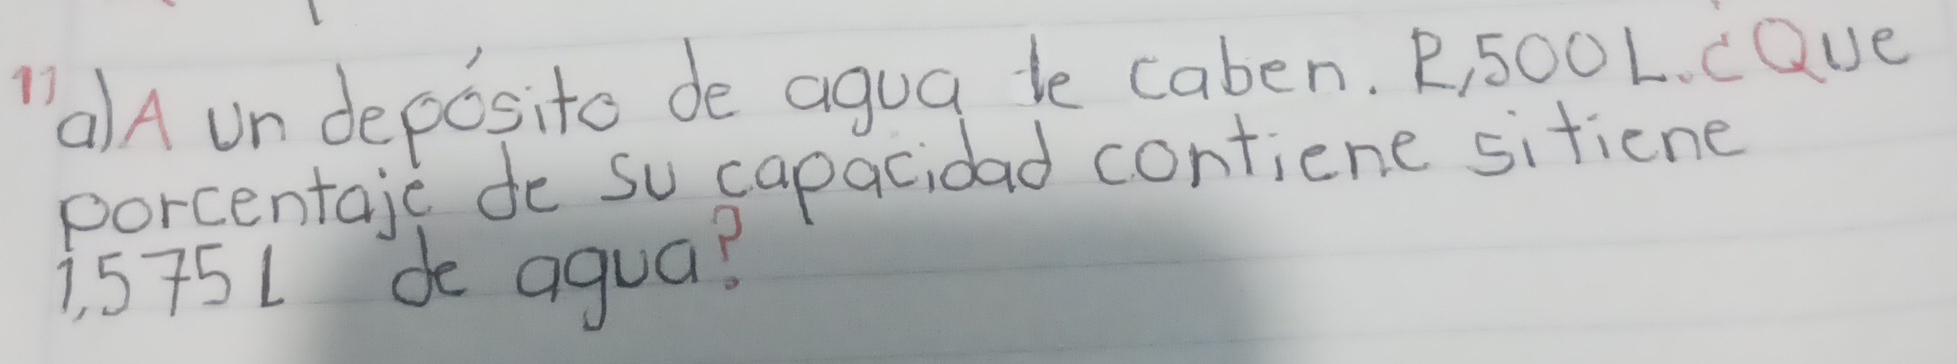 11) a) A un depósito de agua le caben. 2,500 L. ¿Que
porcentaje de su capacidad contiene si tiene
1,575 L de agua?